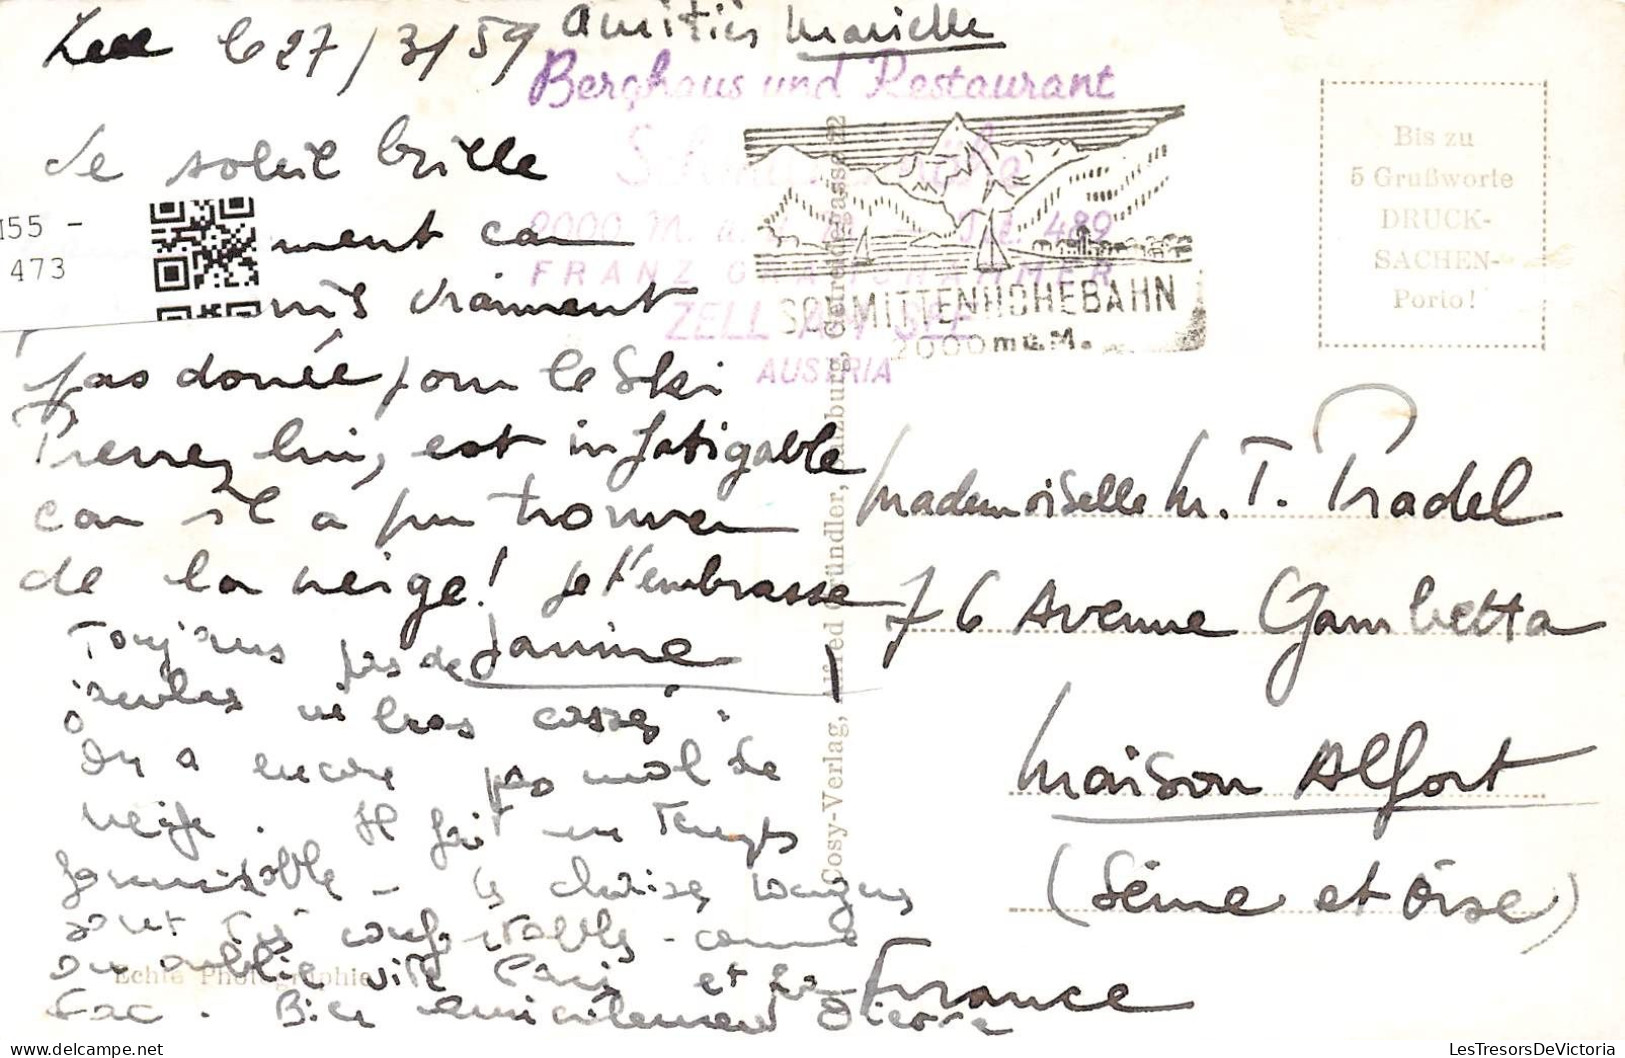 Zell le 27/3/59 Amitiés Marielle
Berghaus und Restaurant
2000 M. 489
FRANZ
ZELL AM SEE
AUSTRIA
SCHMITTENHÖHEBAHN
2000 m ü.M.
Bis zu
5 Grußworte
DRUCK-
SACHEN-
Porto!
Le soleil brille
ment car
vraiment
pas donnée pour le Ski
Pierre, lui, est infatigable
car il a pu trouver
de la neige! Je t'embrasse
Janine
Toujours pas de
jambes ni bras cassés.
On a encore pas mal de
neige. Il fait un temps
formidable - les chaises longues
sont très confortables - comme
on oublie vite Paris et la
Fac. Bien amicalement Pierre
Cosy-Verlag, Alfred Gründler, Salzburg, Getreidegasse 22
Echte Photographie
Mademoiselle M. T. Pradel
76 Avenue Gambetta
Maison Alfort
(Seine et Oise)
France
55 -
473
LesTresorsDeVictoria